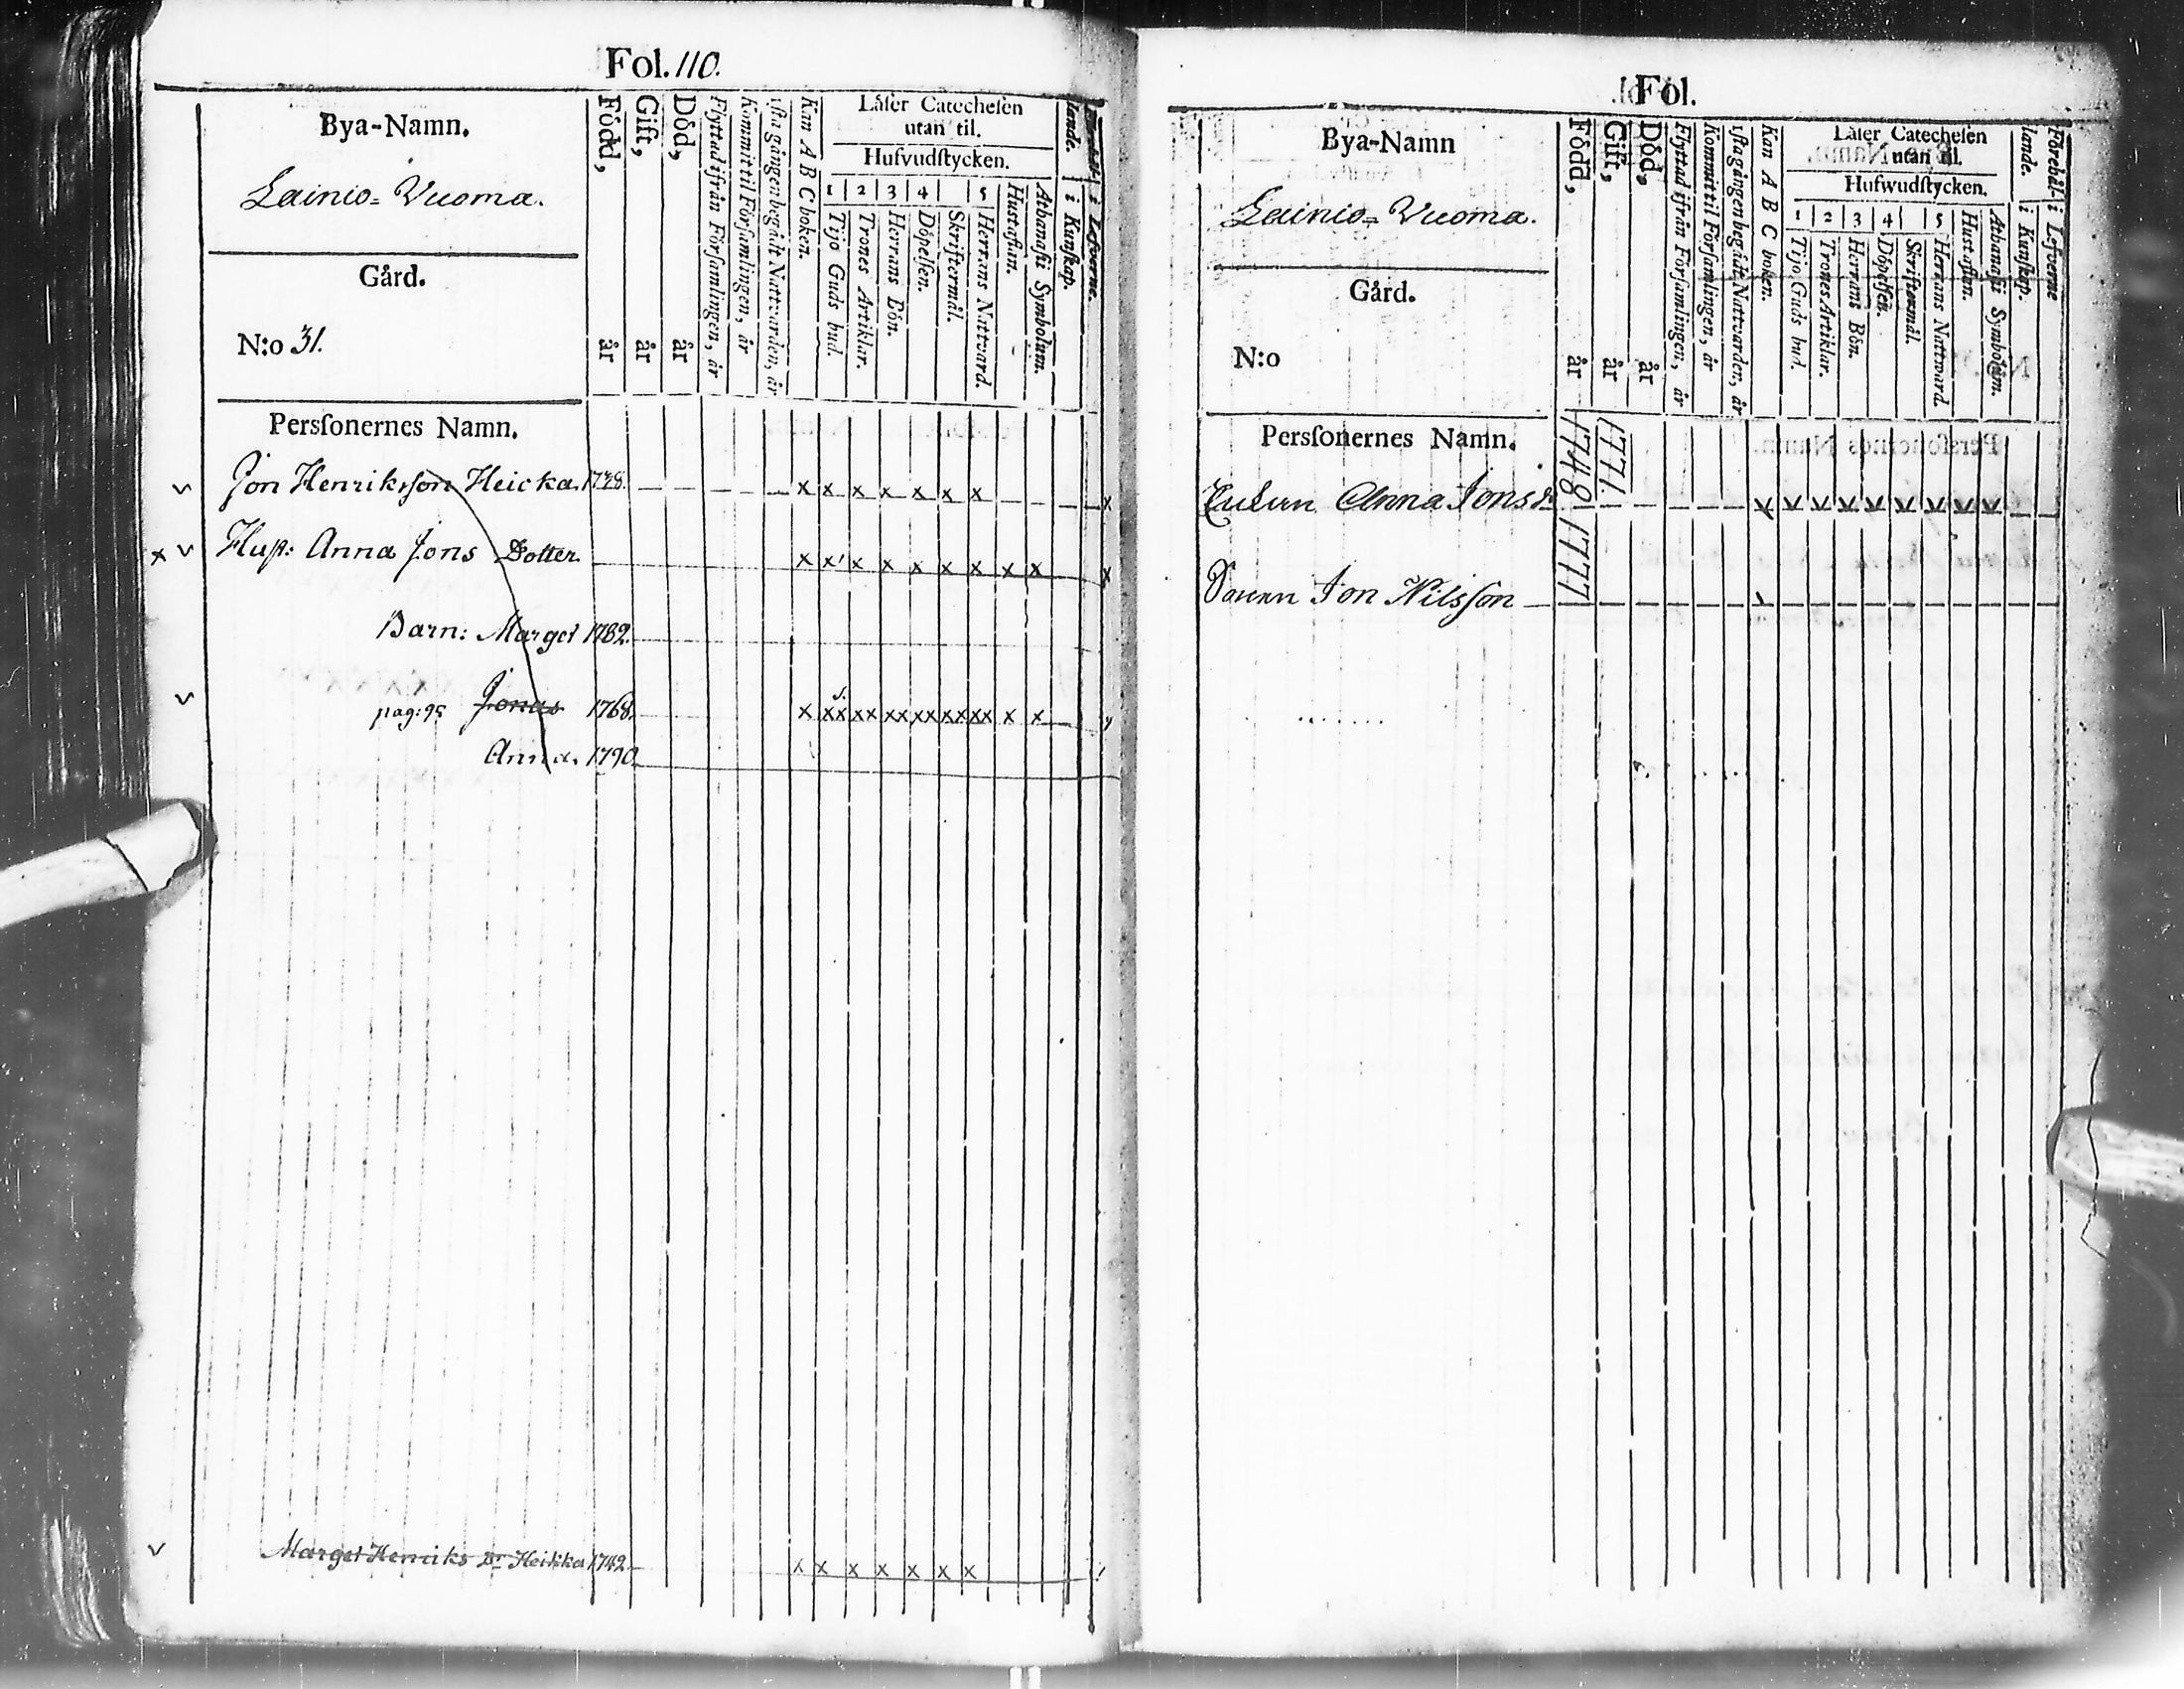 Fol. 110.
Bya-Namn.
Lainio-Vuoma.
Gård.
N:o 31.
Född, år
Gift, år
Död, år
Flyttad ifrån Församlingen, år
Kommit til Församlingen, år
ista gången begått Nattvarden, år
Kan A B C boken.
Låser Catechesen
utan til.
Hufvudstycken.
1 2 3 4 5
Tijo Guds bud.
Trones Artiklar.
Herrans Bön.
Döpelsen.
Skriftermål.
Herrans Nattvard.
Hustaflan.
Athanasii Symbolum.
lande. i Kunskap.
i Lefverne.
Persſonernes Namn.
v Jon Henriksson Heicka. 1738. x x x x x x x x
x v Hust: Anna Jons Dotter x x x x x x x x x x
Barn: Marget 1782.
v pag: 95 Jonas 1768. x xx xx xx xx xx xx x x
Anna. 1790.
v Marget Henriks Dr Heikka 1742 x x x x x x x
Fol.
Bya-Namn
Lainio-Vuoma.
Gård.
N:o
Född, år
Gift, år
Död, år
Flyttad ifrån Församlingen, år
Kommit til Församlingen, år
ista gången begått Nattvarden, år
Kan A B C boken.
Låser Catechesen
utan til.
Hufwudstycken.
1 2 3 4 5
Tijo Guds bud.
Trones Artiklar.
Herrans Bön.
Döpelsen.
Skriftermål.
Herrans Nattvard.
Hustaflan.
Athanasii Symbolum.
Förehållande. i Kunskap.
i Lefverne
Persſonernes Namn.
Anna Jons dr 1748 1771.
Sonen Jon Nilsson 1777